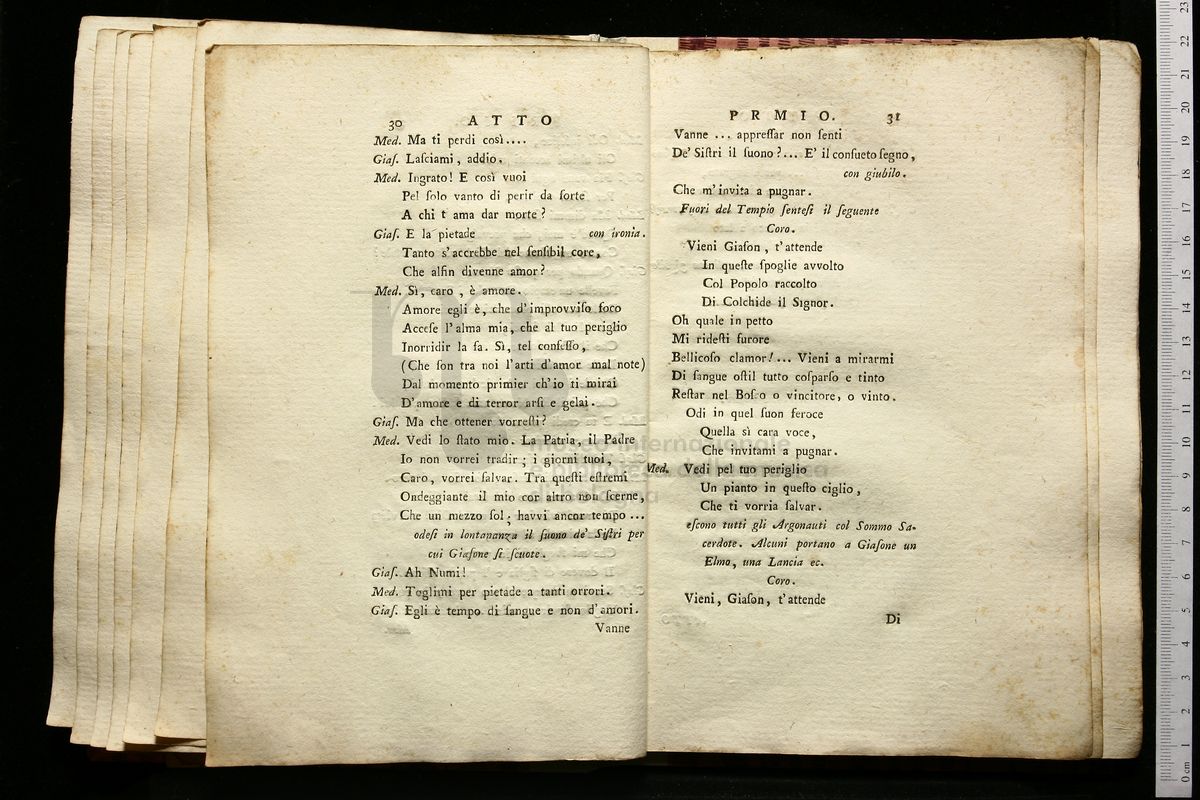 30 ATTO
Med. Ma ti perdi così....
Giaſ. Laſciami, addio.
Med. Ingrato! E così vuoi
Pel ſolo vanto di perir da forte
A chi t ama dar morte?
Giaſ. E la pietade con ironia.
Tanto s'accrebbe nel ſenſibil core,
Che alfin divenne amor?
Med. Sì, caro, è amore.
Amore egli è, che d'improvviſo foco
Acceſe l'alma mia, che al tuo periglio
Inorridir la fa. Sì, tel confeſſo,
(Che ſon tra noi l'arti d'amor mal note)
Dal momento primier ch'io ti mirai
D'amore e di terror arſi e gelai.
Giaſ. Ma che ottener vorreſti?
Med. Vedi lo ſtato mio. La Patria, il Padre
Io non vorrei tradir; i giorni tuoi,
Caro, vorrei ſalvar. Tra queſti eſtremi
Ondeggiante il mio cor altro non ſcerne,
Che un mezzo ſol; havvi ancor tempo ...
odeſi in lontananza il ſuono de' Siſtri per
cui Giaſone ſi ſcuote.
Giaſ. Ah Numi!
Med. Toglimi per pietade a tanti orrori.
Giaſ. Egli è tempo di ſangue e non d'amori.
Vanne
PRMIO. 31
Vanne ... appreſſar non ſenti
De' Siſtri il ſuono?... E' il conſueto ſegno,
con giubilo.
Che m'invita a pugnar.
Fuori del Tempio ſenteſi il ſeguente
Coro.
Vieni Giaſon, t'attende
In queſte ſpoglie avvolto
Col Popolo raccolto
Di Colchide il Signor.
Oh quale in petto
Mi rideſti furore
Bellicoſo clamor!... Vieni a mirarmi
Di ſangue oſtil tutto coſparſo e tinto
Reſtar nel Boſco o vincitore, o vinto.
Odi in quel ſuon feroce
Quella sì cara voce,
Che invitami a pugnar.
Med. Vedi pel tuo periglio
Un pianto in queſto ciglio,
Che ti vorria ſalvar.
eſcono tutti gli Argonauti col Sommo Sa-
cerdote. Alcuni portano a Giaſone un
Elmo, una Lancia ec.
Coro.
Vieni, Giaſon, t'attende
Di